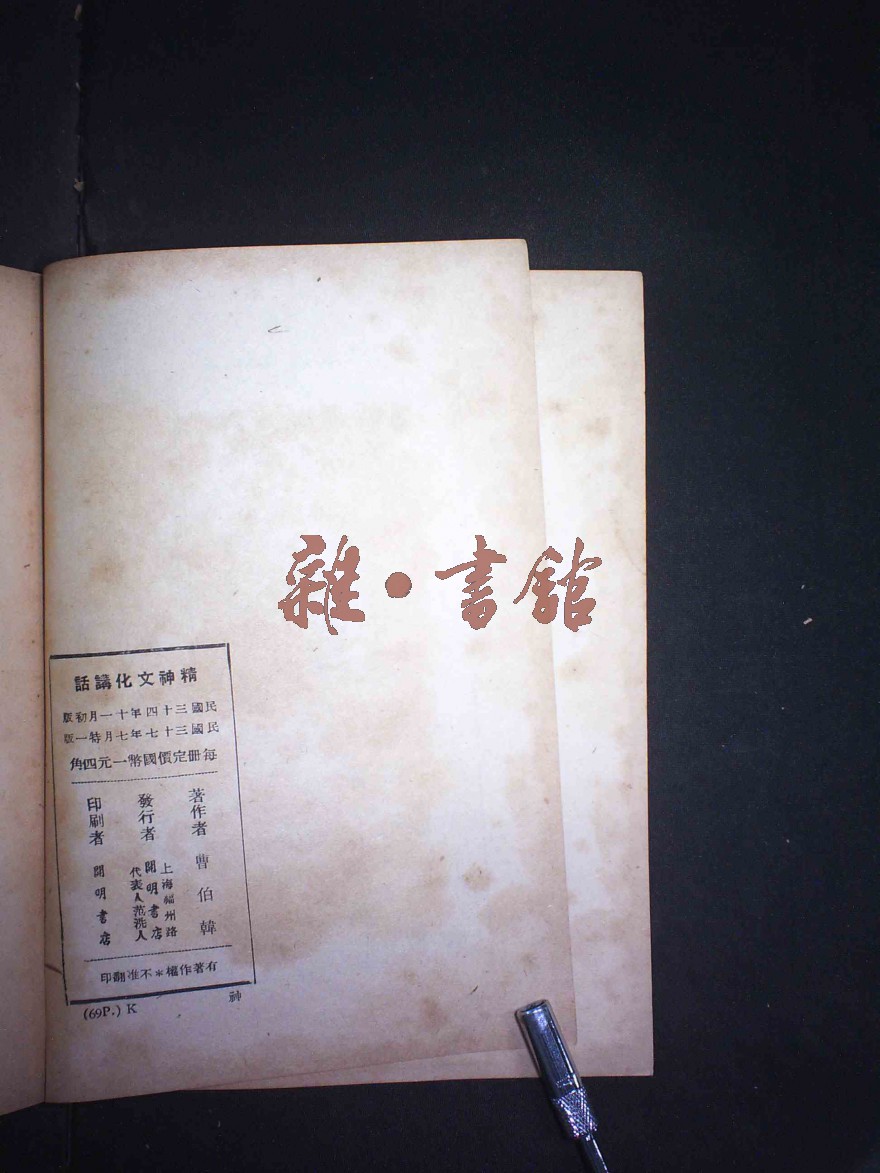 雜·書館
精神文化講話
民國三十四年十一月初版
民國三十七年七月特一版
每冊定價國幣一元四角
著作者 曹伯韓
發行者 上海福州路
開明書店
代表人范洗人
印刷者 開明書店
有著作權＊不准翻印
(69P.) K
神